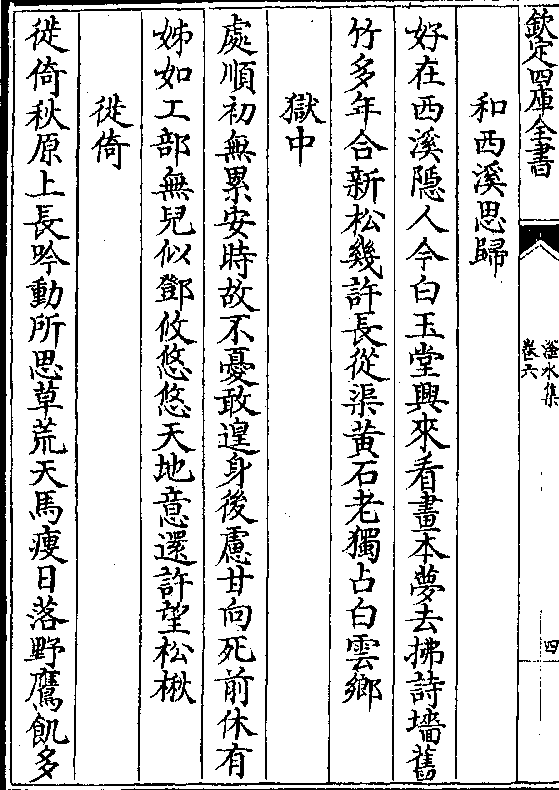 欽定四庫全書
滏水集
卷六
四
和西溪思歸
好在西溪隱人今白玉堂興來看畫本夢去拂詩墻舊
竹多年合新松幾許長從渠黃石老獨占白雲鄉
獄中
處順初無累安時故不憂敢遑身後慮甘向死前休有
姊如工部無兒似鄧攸悠悠天地意還許望松楸
徙倚
徙倚秋原上長吟動所思草荒天馬瘦日落野鷹飢多